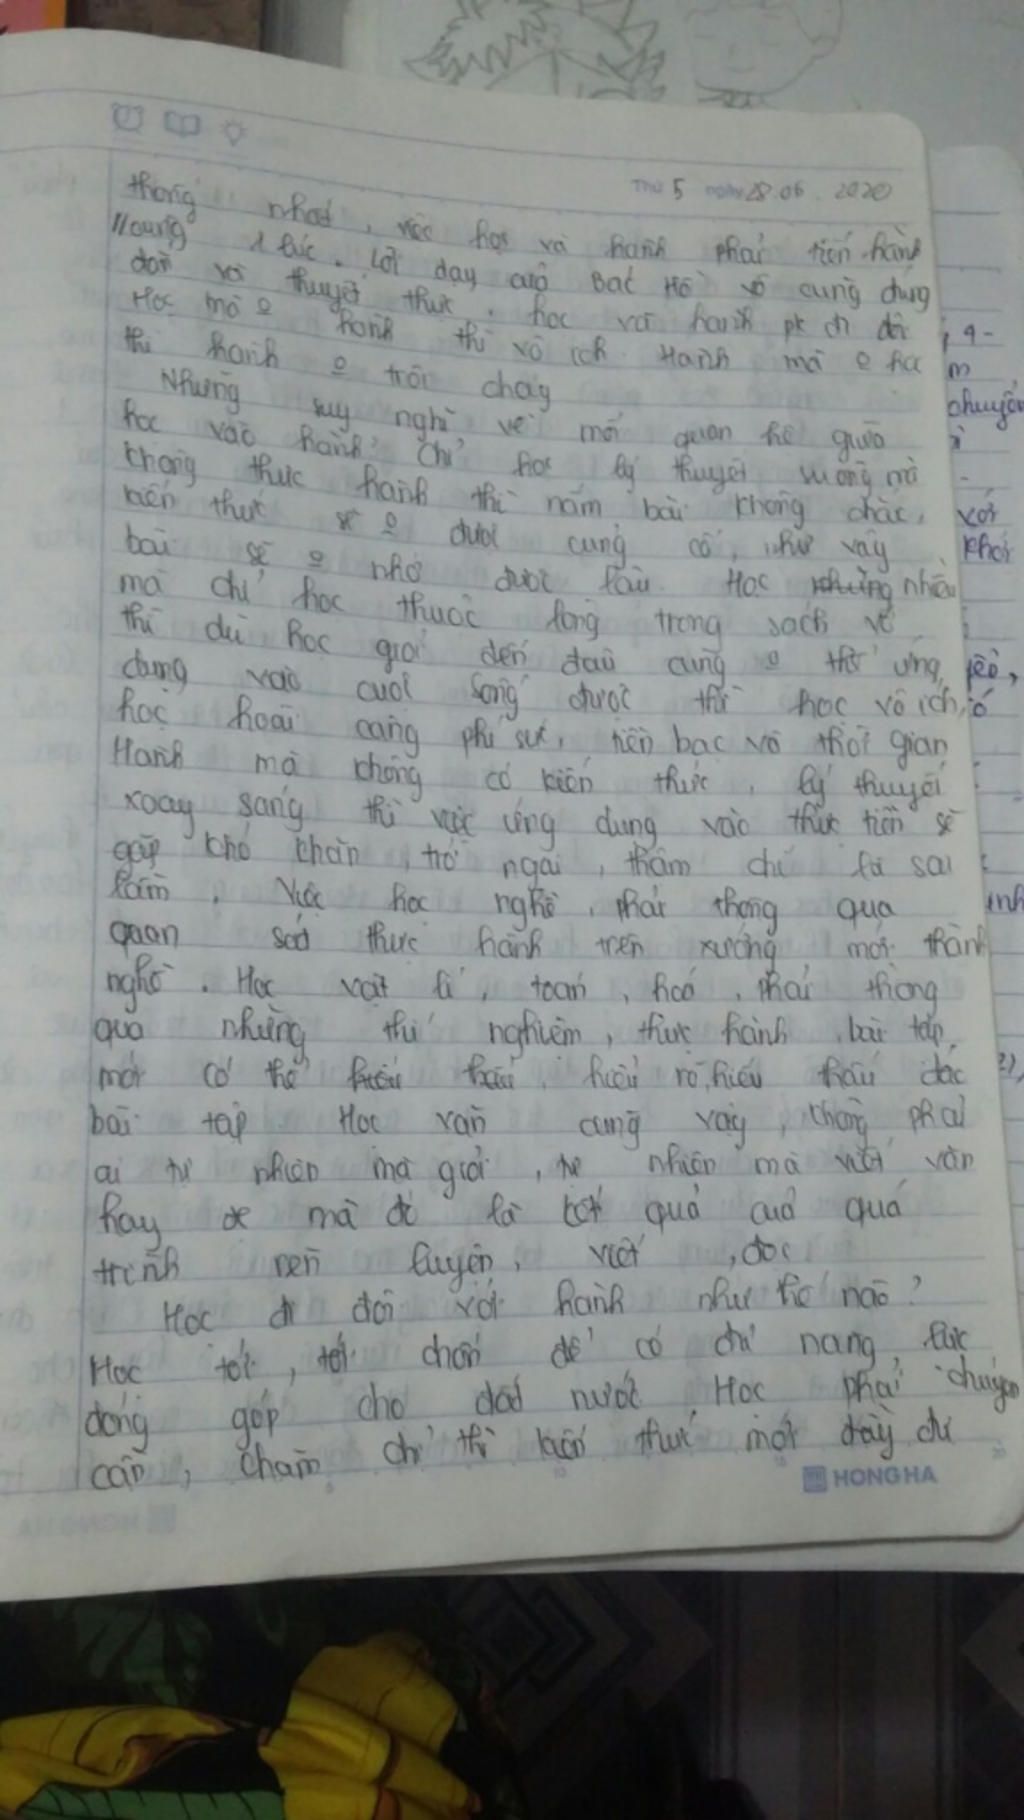 Thứ 5 ngày 28.06.2020
thống nhất, việc học và hành phải tiến hành
// cùng 1 lúc. Lời dạy của Bác Hồ vô cùng đúng
đắn và thuyết thực. học và hành pk đi đôi
Học mà o hành thì vô ích. Hành mà o học
thì hành o trôi chảy
Những suy nghĩ về mối quan hệ giữa
học vào hành. Chỉ học lý thuyết suông mà
không thực hành thì nắm bài không chắc,
kiến thức sẽ o được củng cố, như vậy
bài sẽ o nhớ được lâu. Học nhiều
mà chỉ học thuộc lòng trong sách vở
thì dù học giỏi đến đâu cũng o thể ứng
dụng vào cuộc sống được thì học vô ích,
học hoài càng phí sức, tiền bạc và thời gian
Hành mà không có kiến thức, lý thuyết
xoay sáng thì việc ứng dụng vào thực tiễn sẽ
gặp khó khăn, trở ngại, thậm chí là sai
lầm. Việc học nghề, phải thông qua
quan sát thực hành trên xưởng mới thành
nghề. Học vật lí, toán, hoá, phải thông
qua những thí nghiệm, thực hành, bài tập,
mới có thể hiểu rõ, hiểu thấu các
bài tập Học văn cũng vậy, không phải
ai tự nhiên mà giỏi, tự nhiên mà viết văn
hay đc mà đó là kết quả của quá
trình rèn luyện, viết, đọc
Học đi đôi với hành như thế nào?
Học tốt, tốt chăn để có chí năng, lực
đóng góp cho đất nước. Học phải chuyên
cần, chăm chỉ thì kiến thức mới đầy đủ
HONG HA
chuyển
với
khơi